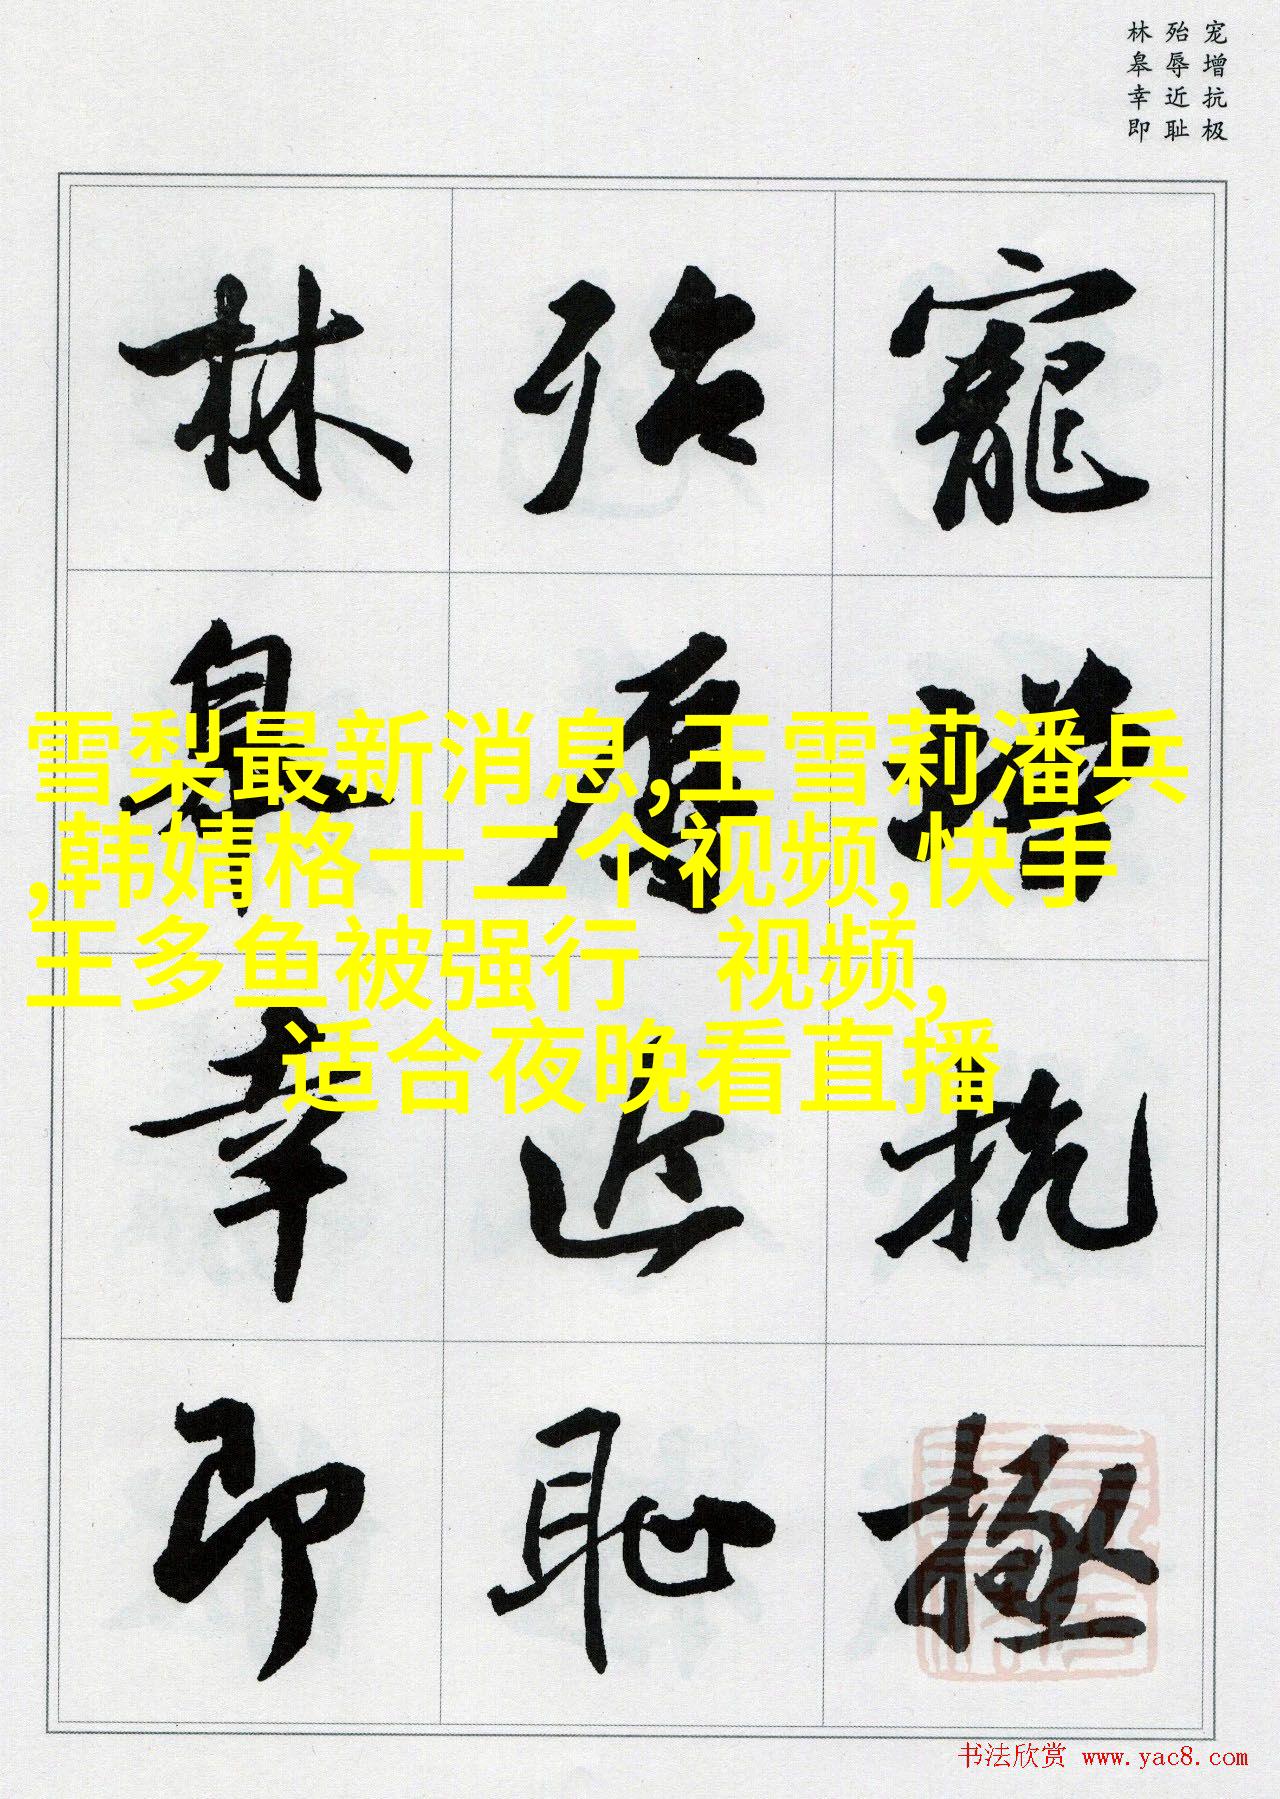 宠增抗极
殆辱近耻
林皋幸即
寵增抗極
殆辱近恥
林皋幸即
雪梨最新消息,王雪莉潘兵
,韩婧格十二个视频,快手
王多鱼被强行 视频,
适合夜晚看直播
书法欣赏 www.yac8.com